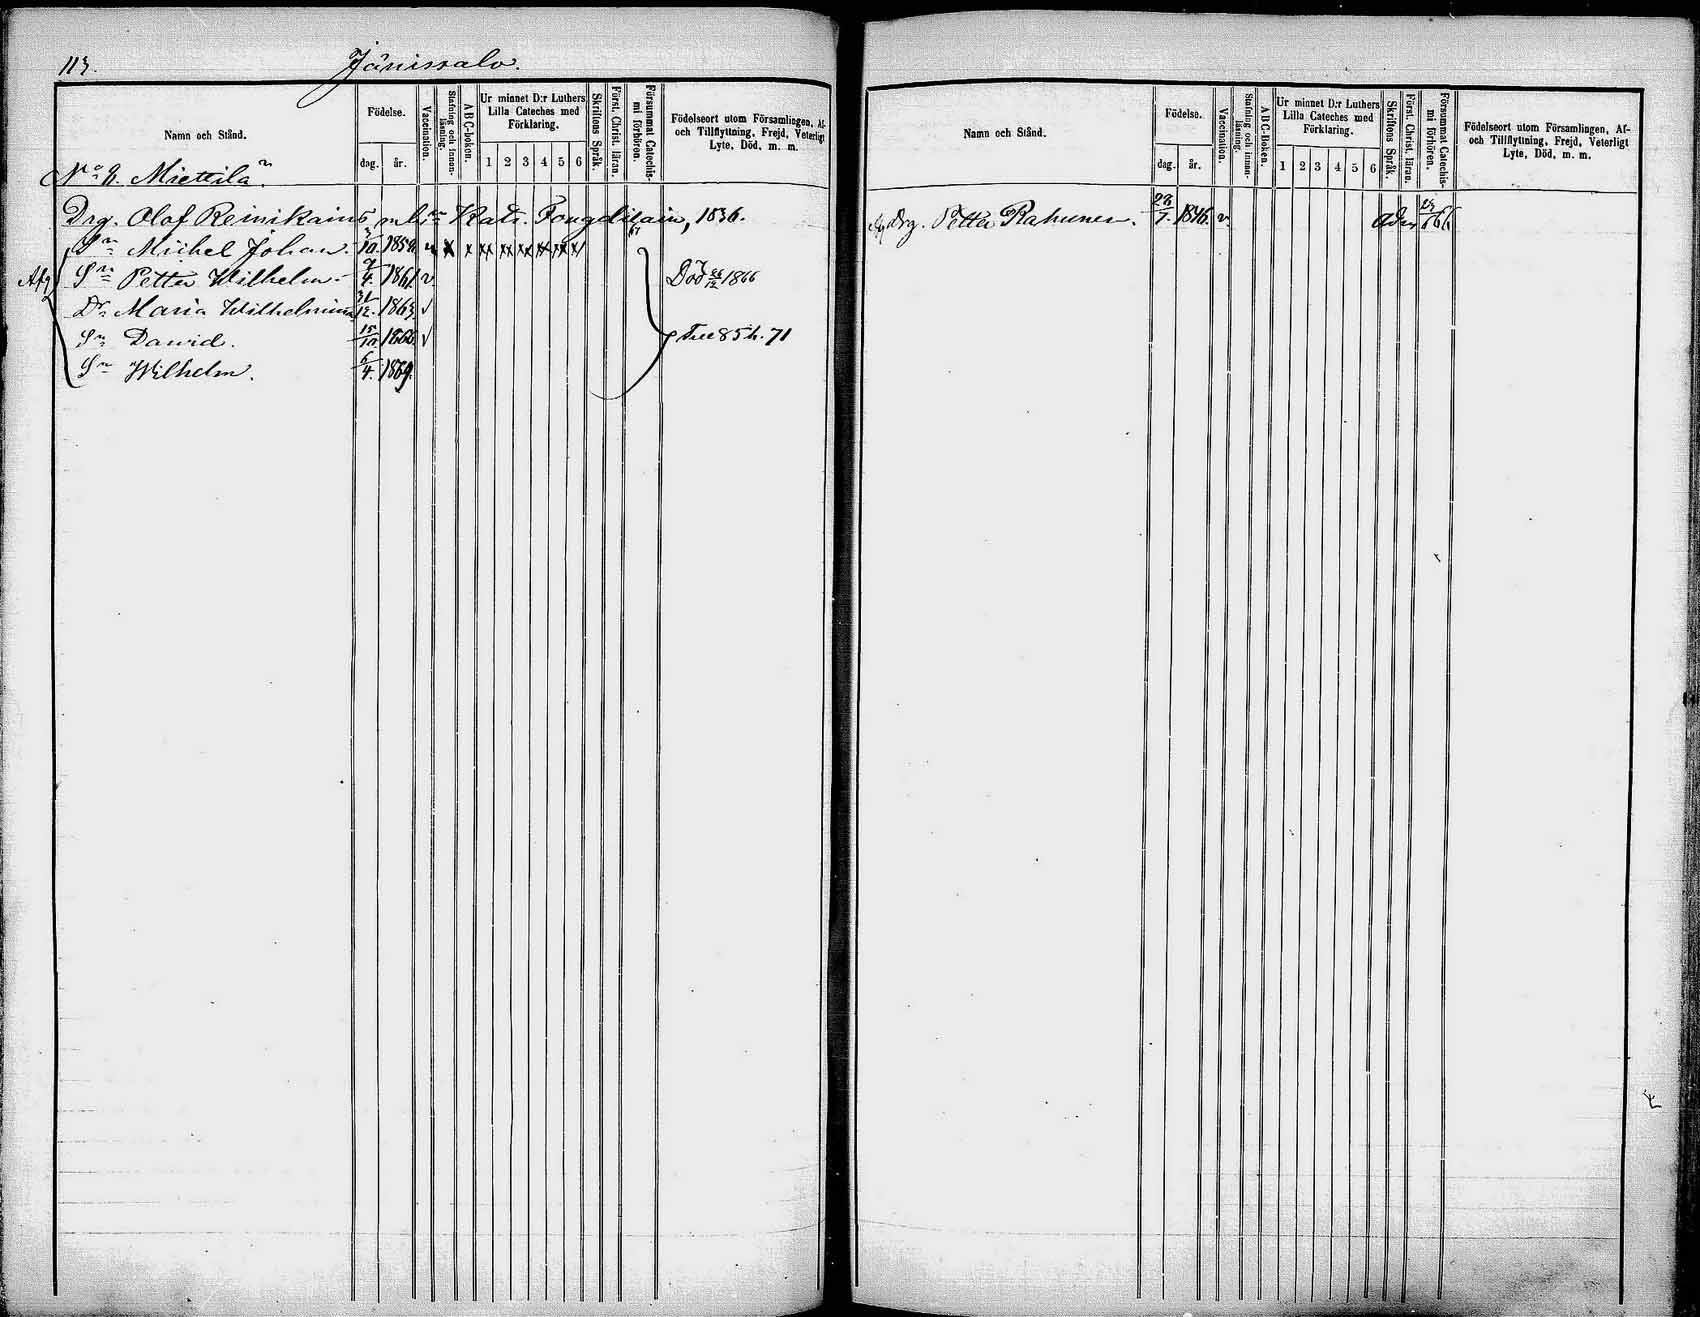 113.
Jänissalo.
Namn och Stånd.
Födelse.
dag.
år.
Vaccination.
Stafning och innanläsning.
ABC-boken.
Ur minnet D:r Luthers Lilla Cateches med Förklaring.
1 2 3 4 5 6
Skriftens Språk.
Först. Christ. läran.
Försummat Catechismi förhören.
Födelseort utom Församlingen, Af- och Tillflyttning, Frejd, Veterligt Lyte, Död, m. m.
Miettila
Drg. Olof Reinikains m. h:u Katr. 1836.
Sn Michel Johan. 10. v x x xx xx xx xx xx x
Afg
Sn Petter Wilhelm. 4. 1861. v Död 1866
Dr Maria Wilhelmina 12. 1863. v
Sn Dawid. 15/10 1866. v 85 h. 71
Sn Wilhelm. 6/4. 1869.
Namn och Stånd.
Födelse.
dag.
år.
Vaccination.
Stafning och innanläsning.
ABC-Boken.
Ur minnet D:r Luthers Lilla Cateches med Förklaring.
1 2 3 4 5 6
Skriftens Språk.
Först. Christ. läran.
Försummat Catechismi förhören.
Födelseort utom Församlingen, Af- och Tillflyttning, Frejd, Veterligt Lyte, Död, m. m.
Drg. Petter Rahunen. 1846. v. 66